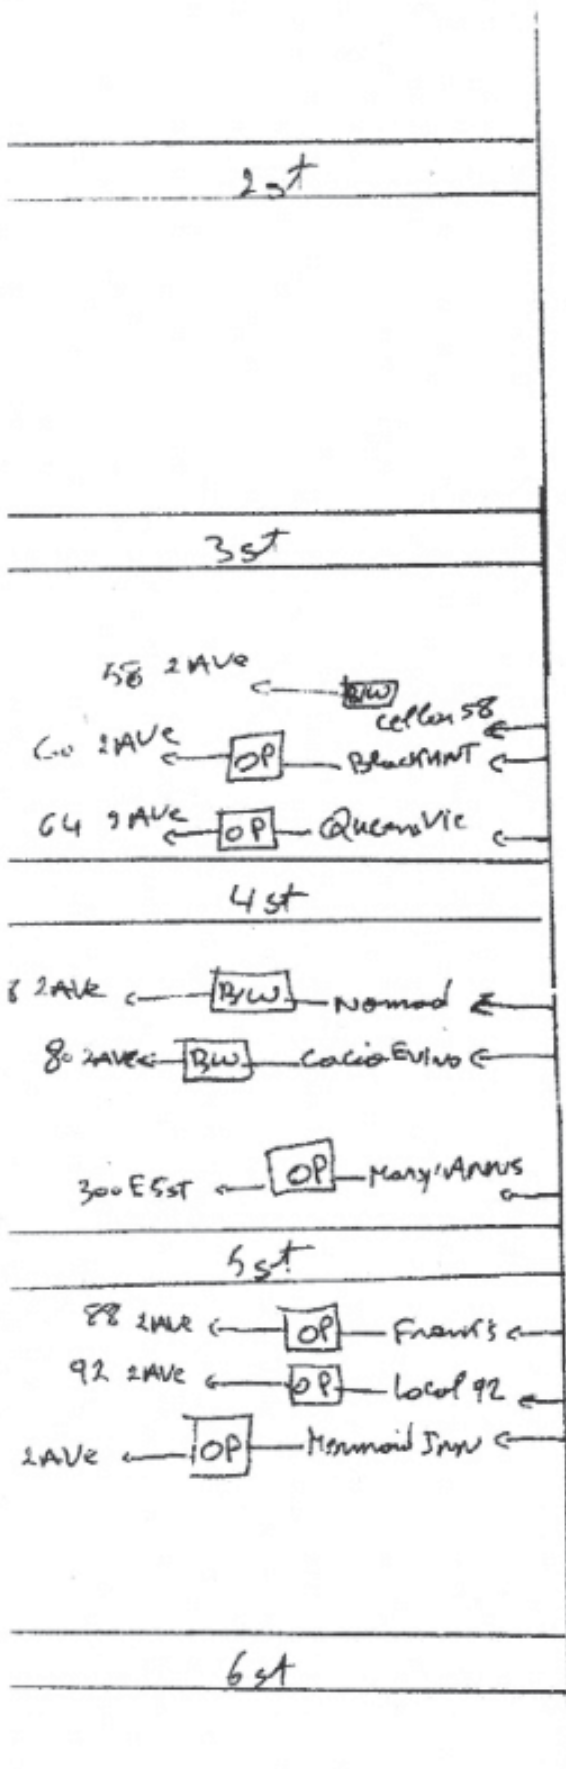 2 st
3 st
58 2 AVe
B/W
cellar 58
60 2 AVe OP BlackANT
64 2 AVe OP Queen Vic
4 st
8 2 AVe B/W Nomad
80 2 AVe BW Cacio EVino
300 E 5 ST OP Mary Anns
5 st
88 2 AVe OP Frank's
92 2 AVe OP Local 92
2 AVe OP Mermaid Inn
6 st